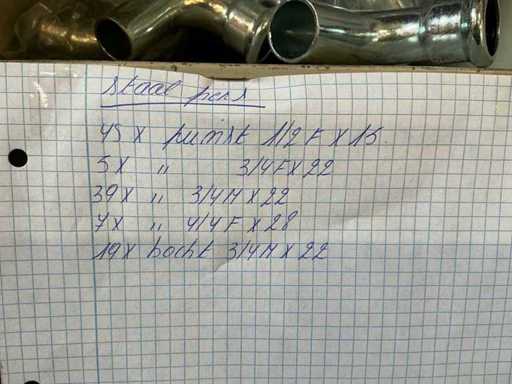 staal pers
45 x puntst 1/2 F x 15
5x " 3/4 F x 22
39x " 3/4 M x 22
7x " 4/4 F x 28
19x bocht 3/4 M x 22